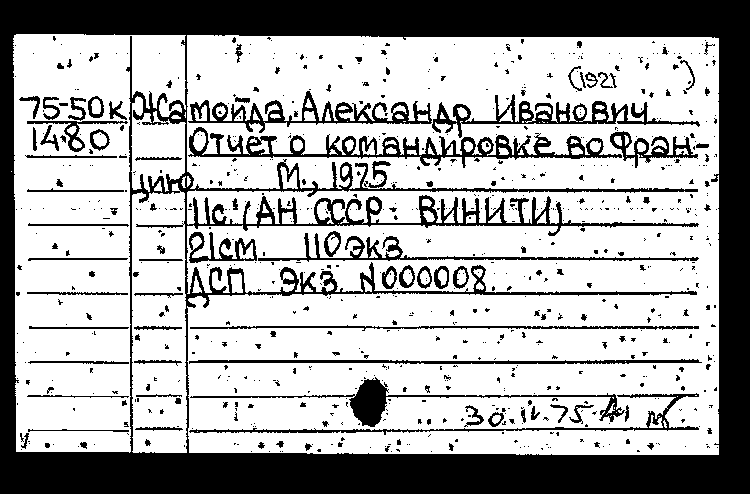 (1921 )
75-50к Жамойда, Александр Иванович.
1480 Отчет о командировке во Фран-
цию. М., 1975.
11с. (АН СССР. ВИНИТИ).
21см. 110экз.
ДСП экз. N000008.
30.IV.75